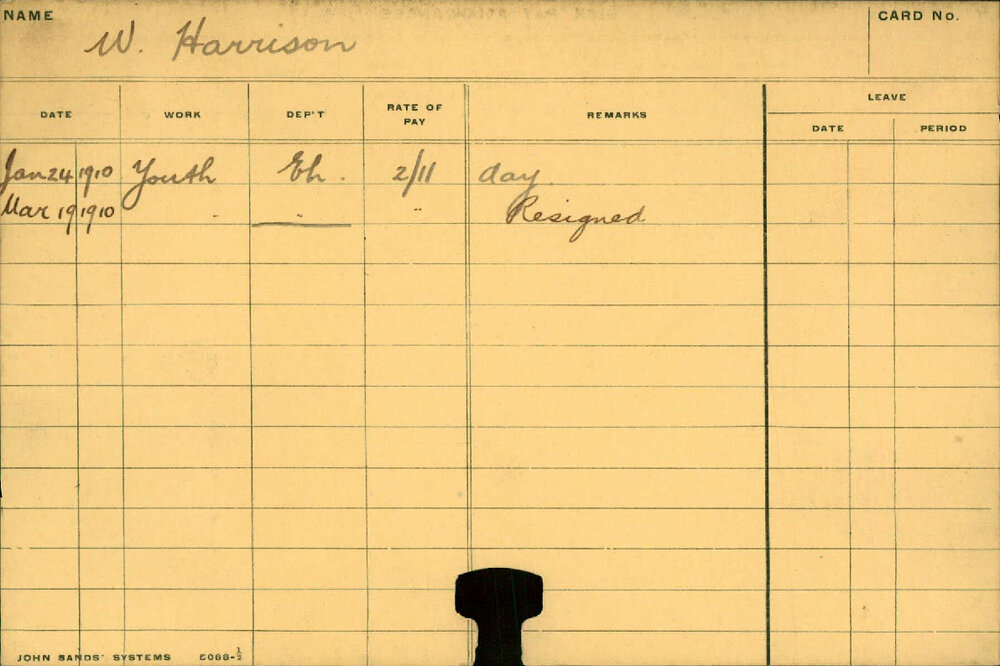 NAME W. Harrison CARD No.
DATE WORK DEP'T RATE OF PAY REMARKS LEAVE
DATE PERIOD
Jan 24 1910 Youth Eh. 2/11 day
Mar 19 1910 " " " Resigned
JOHN SANDS' SYSTEMS 5068-½